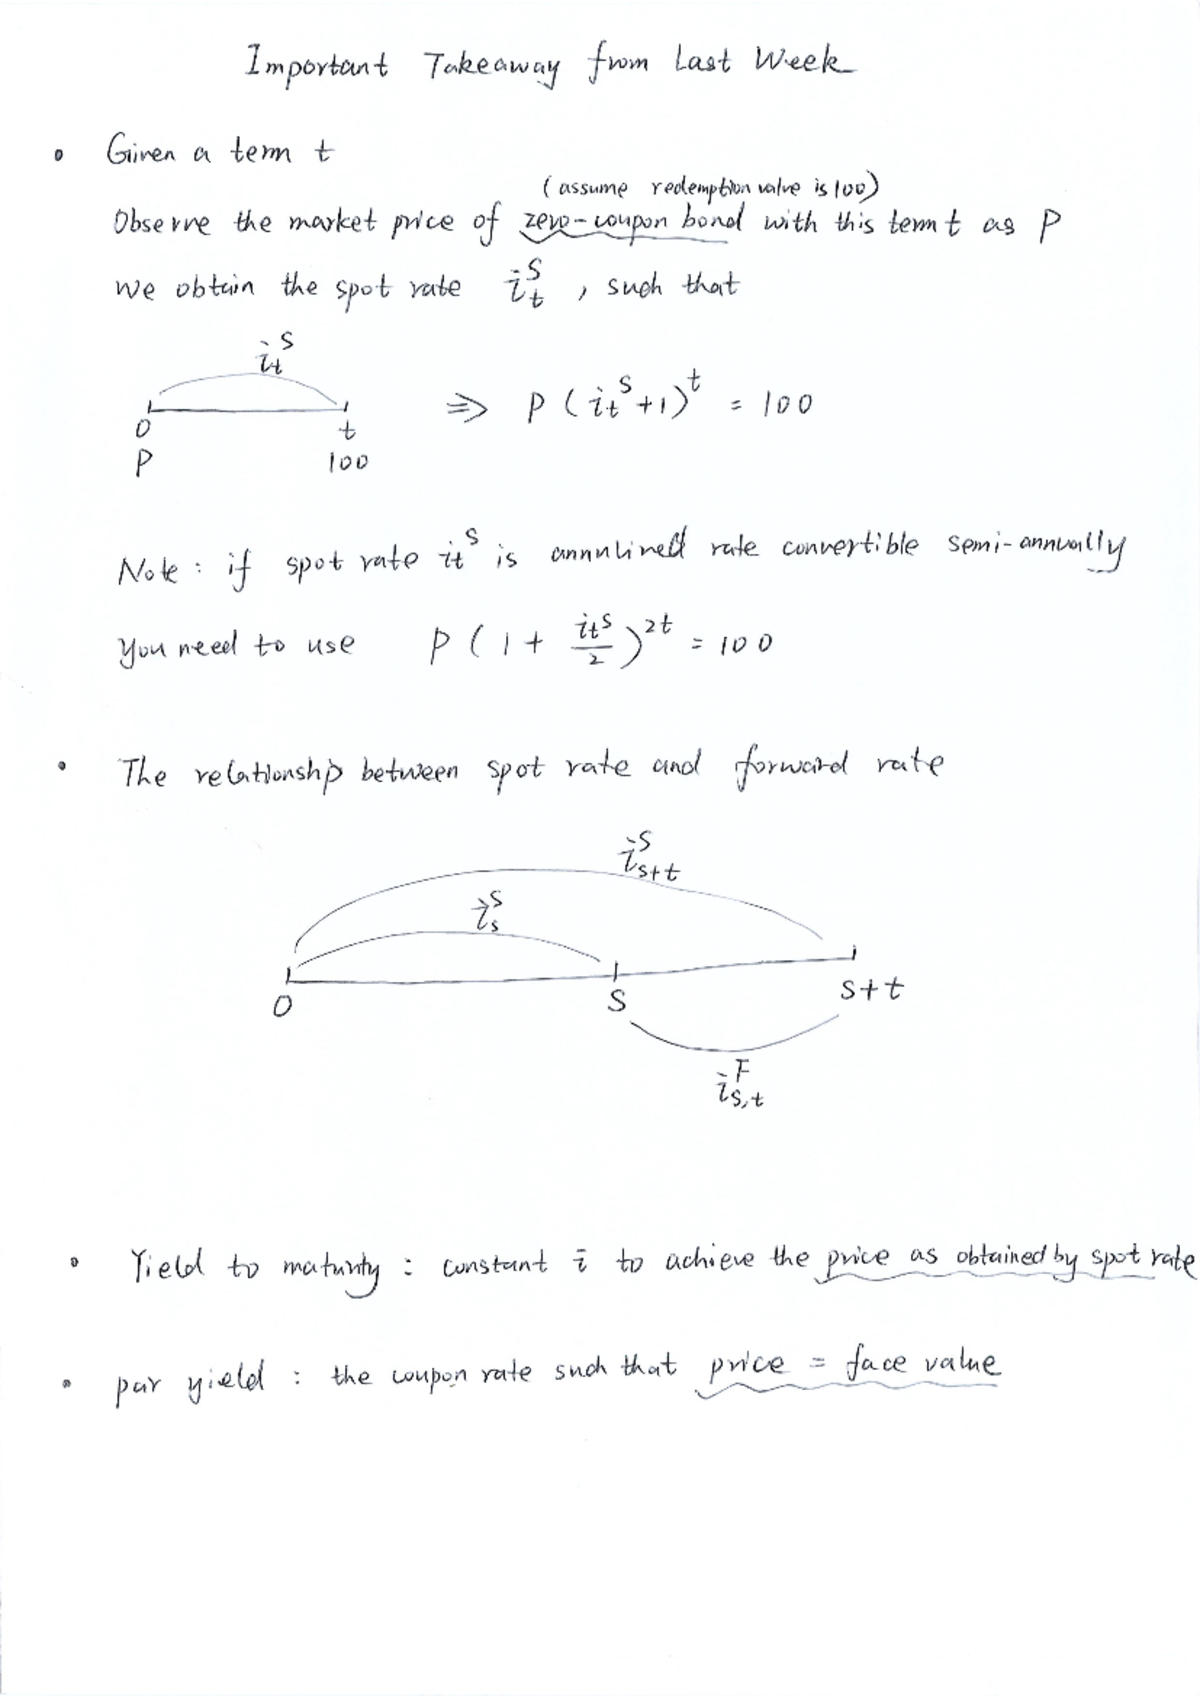 Important Takeaway from Last Week
• Given a term t
(assume redemption value is 100)
Observe the market price of zero-coupon bond with this term t as P
We obtain the spot rate i_t^S , such that
i_t^S
0 t ⇒ P(i_t^S+1)^t = 100
P 100
Note : if spot rate i_t^S is annulined rate convertible semi-annually
You need to use P(1 + i_t^S/2)^2t = 100
• The relationship between spot rate and forward rate
i_{s+t}^S
i_s^S
0 S S+t
i_{s,t}^F
• Yield to maturity : constant i to achieve the price as obtained by spot rate
• par yield : the coupon rate such that price = face value